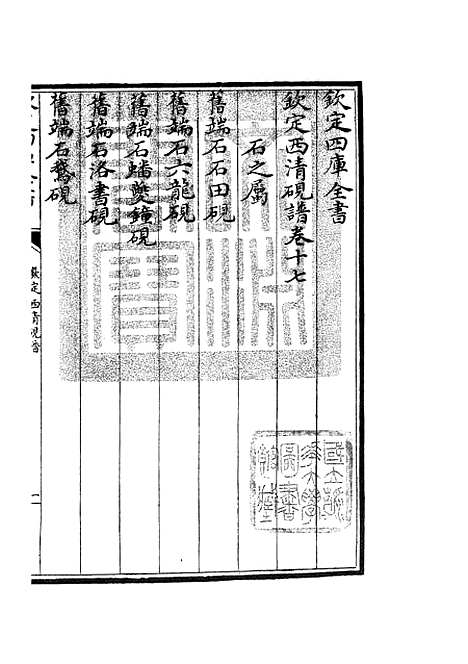 欽定四庫全書
欽定西清硯譜卷十七
石之屬
舊端石石田硯
舊端石六龍硯
舊端石蟠夔鐘硯
舊端石洛書硯
舊端石鵞硯
欽定西清硯譜
一